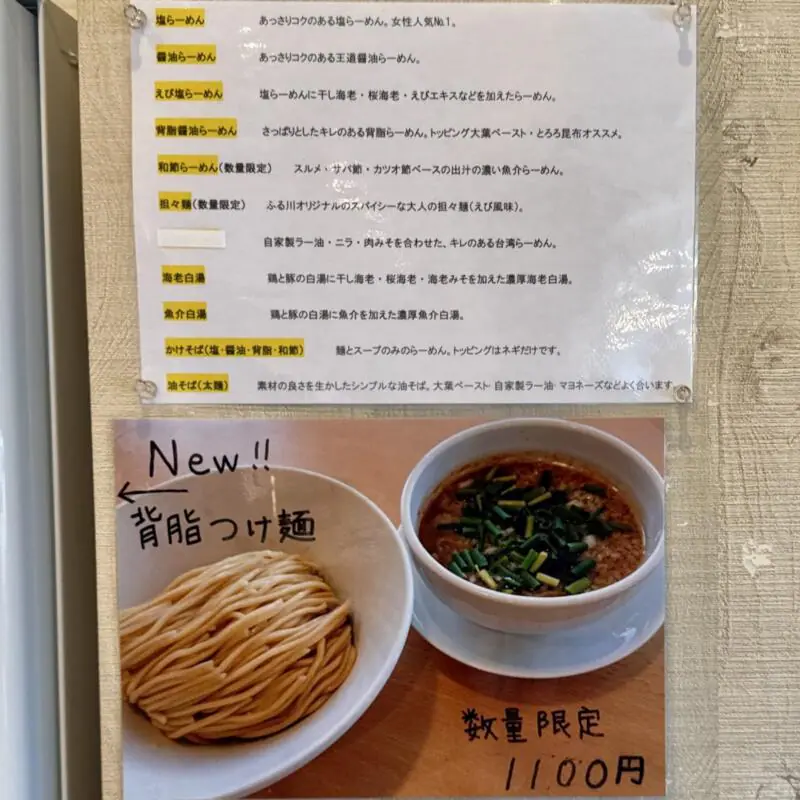 塩らーめん あっさりコクのある塩らーめん。女性人気№1。
醤油らーめん あっさりコクのある王道醤油らーめん。
えび塩らーめん 塩らーめんに干し海老・桜海老・えびエキスなどを加えたらーめん。
背脂醤油らーめん さっぱりとしたキレのある背脂らーめん。トッピング大葉ペースト・とろろ昆布オススメ。
和節らーめん(数量限定) スルメ・サバ節・カツオ節ベースの出汁の濃い魚介らーめん。
担々麺(数量限定) ふる川オリジナルのスパイシーな大人の担々麺(えび風味)。
自家製ラー油・ニラ・肉みそを合わせた、キレのある台湾らーめん。
海老白湯 鶏と豚の白湯に干し海老・桜海老・海老みそを加えた濃厚海老白湯。
魚介白湯 鶏と豚の白湯に魚介を加えた濃厚魚介白湯。
かけそば(塩・醤油・背脂・和節) 麺とスープのみのらーめん。トッピングはネギだけです。
油そば(太麺) 素材の良さを生かしたシンプルな油そば。大葉ペースト・自家製ラー油・マヨネーズなどよく合います
New!!
←
背脂つけ麺
数量限定
1100円